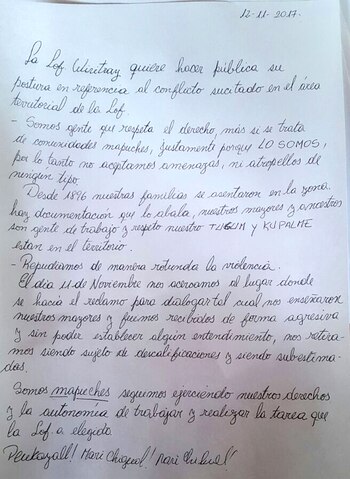 12-11-2017.
La Lof Wiritray quiere hacer pública su
postura en referencia al conflicto sucitado en el área
territorial de la Lof.
- Somos gente que respeta el derecho, más si se trata
de comunidades mapuches, justamente porque LO SOMOS,
por lo tanto no aceptamos amenazas, ni atropellos de
ningun tipo.
Desde 1896 nuestras familias se asentaron en la zona,
hay documentación que lo abala, nuestros mayores y ancestros
son gente de trabajo y respeto nuestro TUGUM y KUPALME
estan en el territorio.
- Repudiamos de manera rotunda la violencia.
El día 11 de Noviembre nos acercamos al lugar donde
se hacía el reclamo para dialogar tal cual nos enseñaron
nuestros mayores y fuimos recibidos de forma agresiva
y sin poder establecer algún entendimiento, nos retira-
mos siendo sujeto de descalificaciones y siendo subestima-
das.
Somos mapuches seguimos ejerciendo nuestros derechos
y la autonomia de trabajar y realizar la tarea que
la Lof a elegido.
Peukayall! Mari Chiweu! Mari Chiweu!